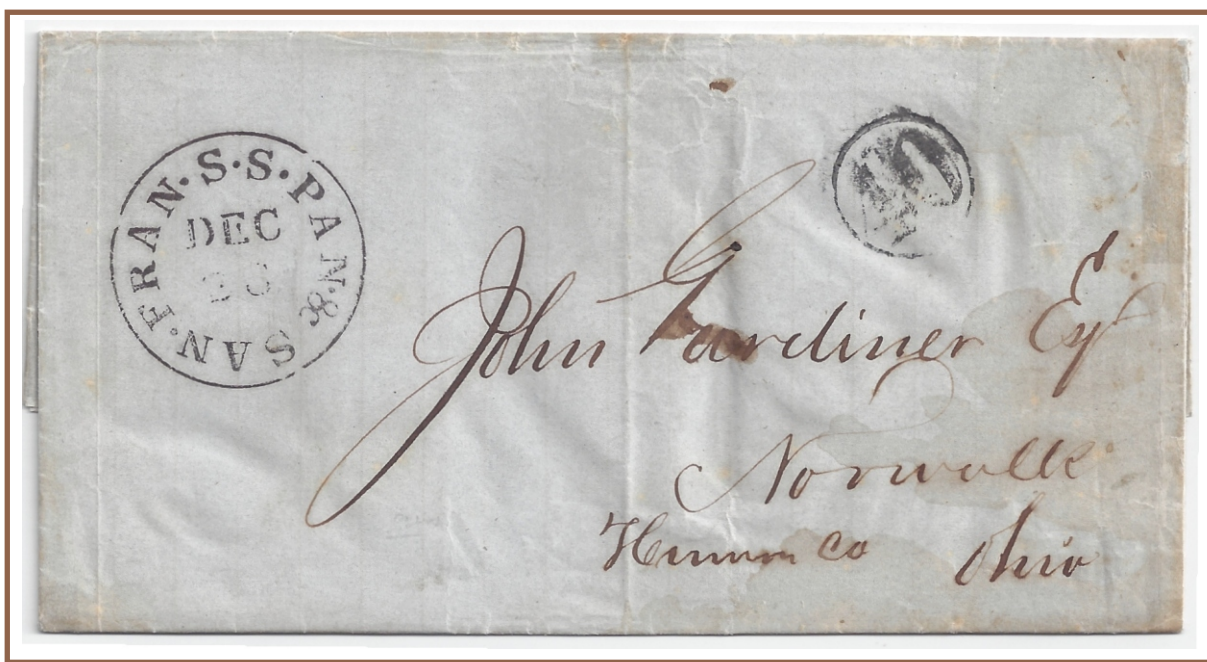 PAN. & SAN. FRAN. S.S.
DEC
40
John Gardiner Esq
Norwalk
Huron Co Ohio